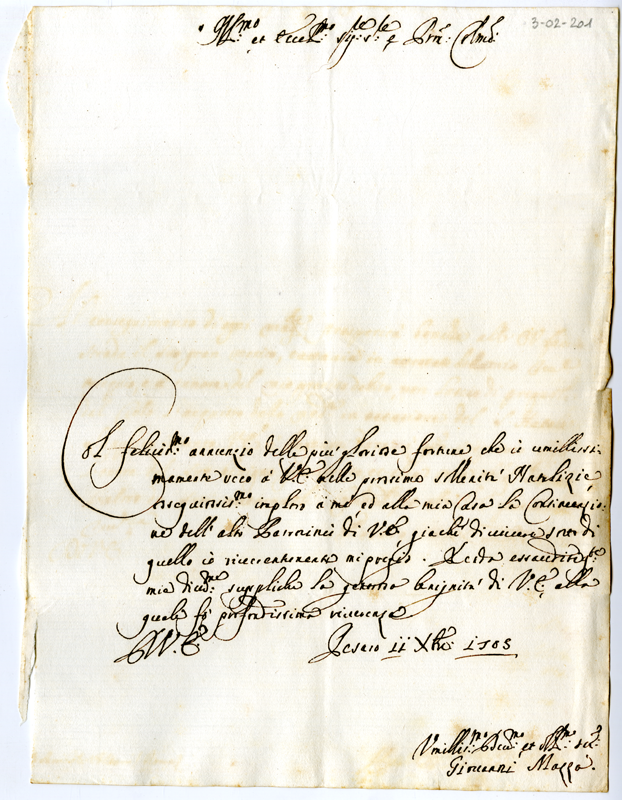 3-02-201
Ill:mo et Ecce:mo Sig:re Sig:re e Pron: Colmo:
Col felicis:mo annunzio delle più gloriose fortune che io umilissi=
mamente reco á V.E. nelle prossime sollenità Natalizie
ossequiosis:mo imploro a mé, ed alla mia Casa la Continuazio=
ne dell' alto Patrocinio di V.E. giaché di vivere sotto di
quello io riverentemente mi pregio.
mie suppliche la generosa benignità di V.E. alla
quale fò profondissima riverenza
Di V.E.
Pesaro 11 Xbre: 1705
Umiliss:mo Devo:mo et
Giovanni Mazza